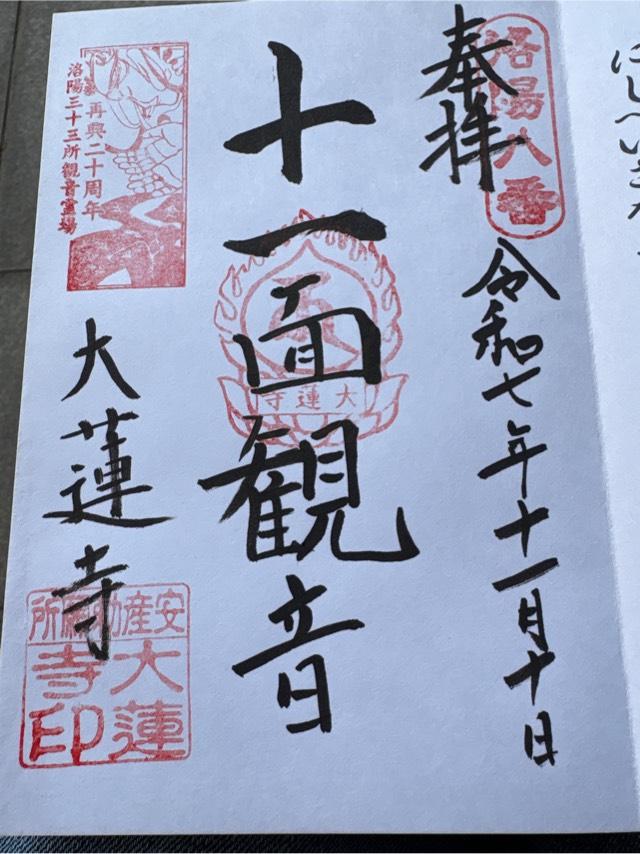 洛陽八番
奉拝
令和七年十一月十日
十一面観音
大蓮寺
再興二十周年
洛陽三十三所観音霊場
大蓮寺
安産勅願所
大蓮寺印